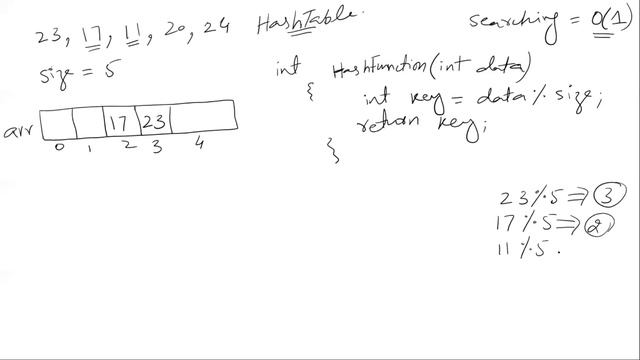 23, 17, 11, 20, 24 HashTable. searching = O(1)
size = 5
int HashFunction(int data)
{
int key = data % size;
return key;
}
arr 17 23
0 1 2 3 4
23 % 5 ⇒ 3
17 % 5 ⇒ 2
11 % 5 .